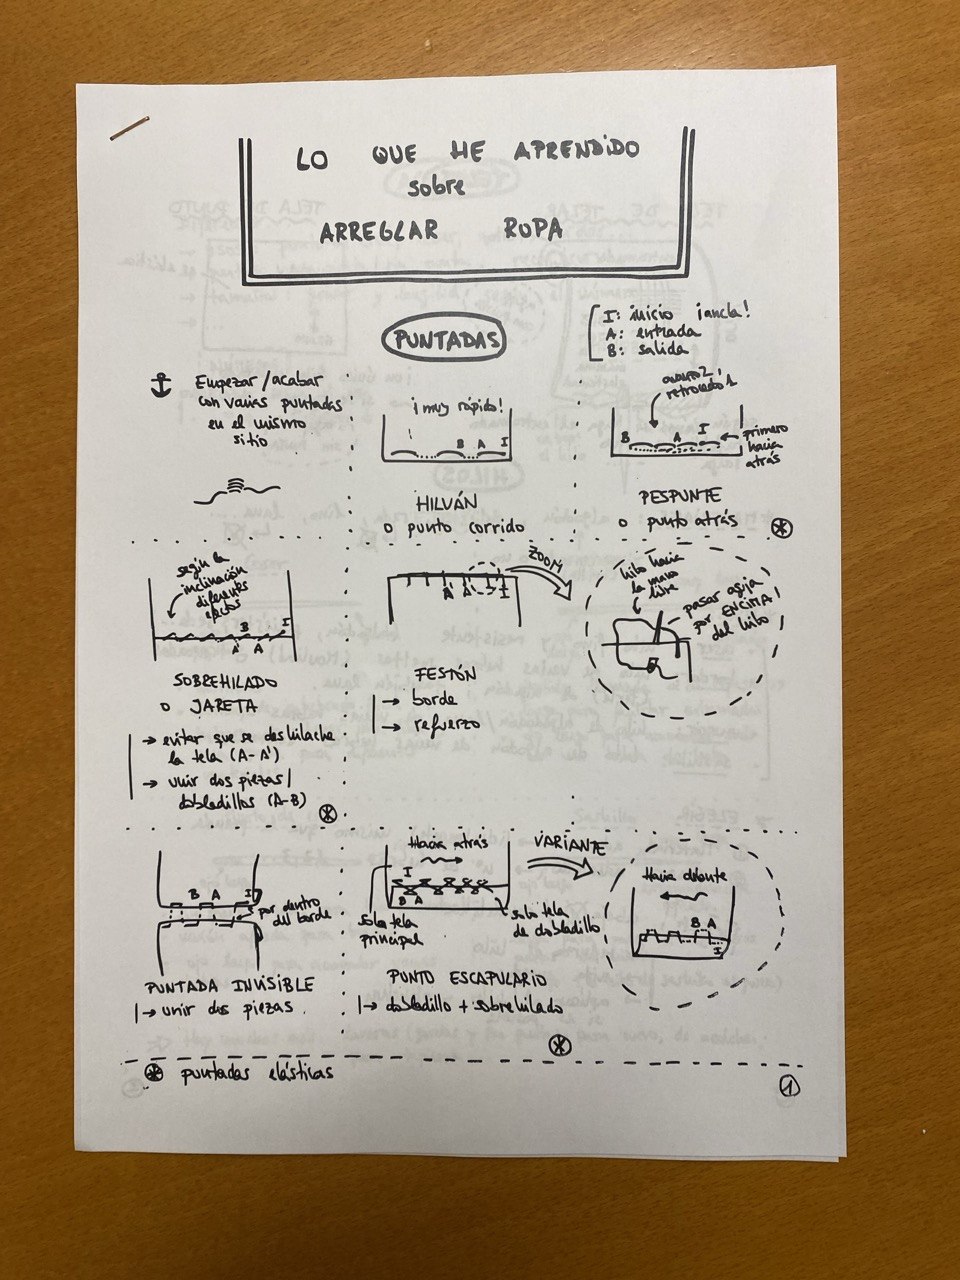 LO QUE HE APRENDIDO
sobre
ARREGLAR ROPA
PUNTADAS
I: inicio ¡ancla!
A: entrada
B: salida
Empezar/acabar
con varias puntadas
en el mismo
sitio
¡muy rápido!
B A I
HILVÁN
o punto corrido
avanzo 2,
retrocedo 1
B A I
primero
hacia
atrás
PESPUNTE
o punto atrás
según la
inclinación
diferentes
efectos
B I
A' A
SOBREHILADO
o JARETA
→ evitar que se deshilache
la tela (A-A')
→ unir dos piezas/
dobladillos (A-B)
A A' I
FESTÓN
→ borde
→ refuerzo
ZOOM
hilo hacia
la mano
libre
pasar aguja
por ENCIMA!
del hilo
B A I
por dentro
del borde
PUNTADA INVISIBLE
→ unir dos piezas
Hacia atrás
I
B A
solo tela
principal
solo tela
de dobladillo
PUNTO ESCAPULARIO
→ dobladillo + sobrehilado
VARIANTE
Hacia delante
B A
I
puntadas elásticas
1